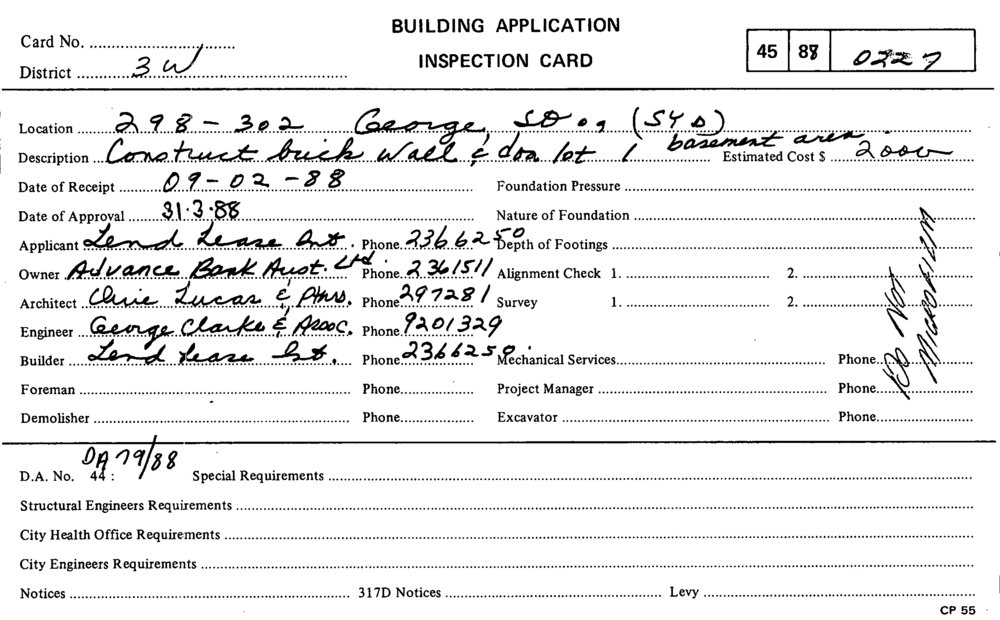 BUILDING APPLICATION
INSPECTION CARD
Card No.
District 3W
45 88 0227
Location 298-302 George, (SYD)
Description Construct brick wall & lot 1 basement area. Estimated Cost $ 2000
Date of Receipt 09-02-88 Foundation Pressure
Date of Approval 31.3.88 Nature of Foundation
Applicant Lend Lease Int. Phone 2366250 Depth of Footings
Owner Advance Bank Aust. Ltd. Phone 2361511 Alignment Check 1. 2.
Architect Clive Lucas & Ptnrs. Phone 297281 Survey 1. 2.
Engineer George Clarke & Assoc. Phone 9201329
Builder Lend Lease Int. Phone 2366250 Mechanical Services Phone
Foreman Phone Project Manager Phone
Demolisher Phone Excavator Phone
DO NOT
MICROFILM
D.A. No. 44: DA 79/88 Special Requirements
Structural Engineers Requirements
City Health Office Requirements
City Engineers Requirements
Notices 317D Notices Levy
CP 55